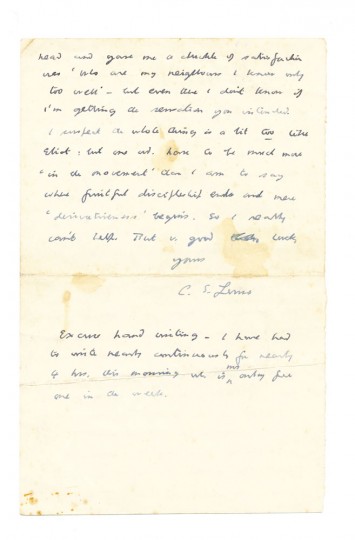 head and gave me a chuckle of satisfaction
was 'Who are my neighbours I know only
too well' – but even there I don't know if
I'm getting the sensation you intended
I suspect the whole thing is a bit too like
Eliot: but one wd. have to be much more
"in the movement" than I am to say
where fruitful discipleship ends and mere
'derivativeness' begins. So I really
can't help. But v. good luck
yours
C. S. Lewis
Excuse hand writing – I have had
to write nearly continuously for nearly
4 hrs. this morning wh is my only free
one in the week.